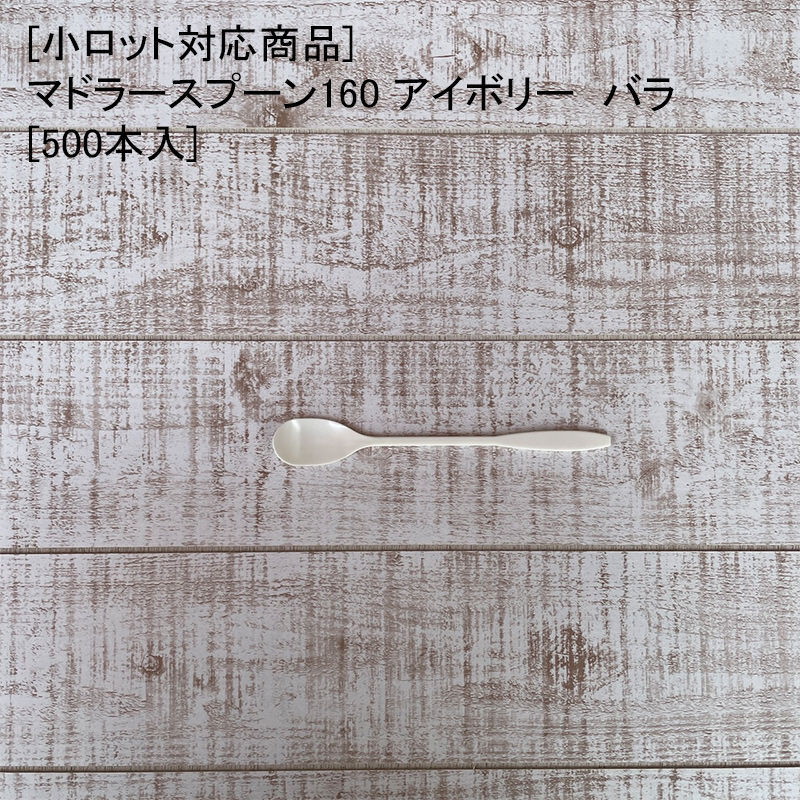 [小ロット対応商品]
マドラースプーン160 アイボリー　バラ
[500本入]